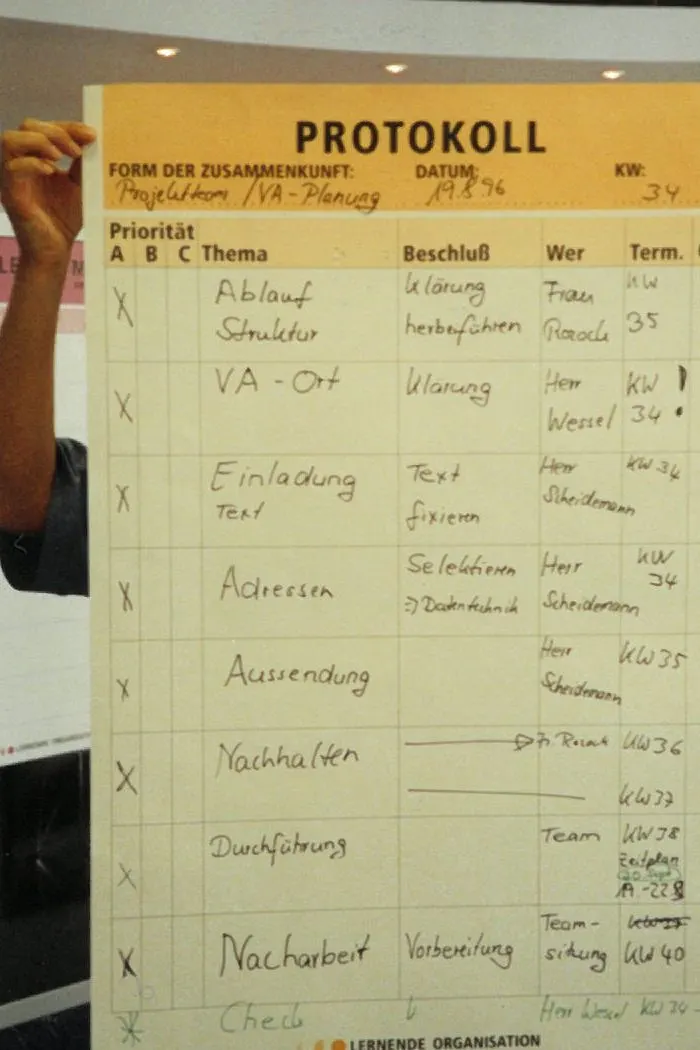 PROTOKOLL
FORM DER ZUSAMMENKUNFT: DATUM: KW:
Projektteam / VA-Planung 19.8.96 34
Priorität
A B C Thema Beschluß Wer Term.
X Ablauf Klärung Frau KW
Struktur herbeiführen 35
X VA-Ort Klärung Herr KW !
Wessel 34
X Einladung Text Herr KW 34
Text fixieren Scheidemann
X Adressen Selektieren Herr KW
34
=> Datentechnik Scheidemann
X Aussendung Herr KW 35
Scheidemann
X Nachhalten KW 36
KW 37
X Durchführung Team KW 38
Zeitplan
20. Sept
19.-22
X Nacharbeit Vorbereitung Team-
sitzung KW 40
Check Herr Wessel KW 34-
LERNENDE ORGANISATION